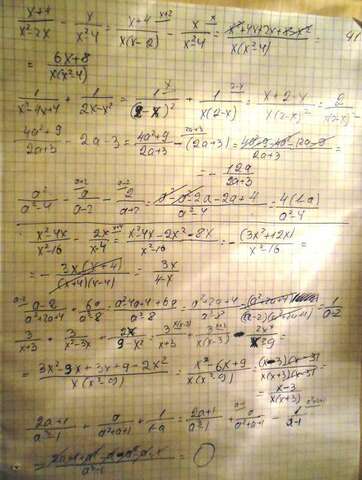 x+4/x²-2x - x/x²-4 = x+4/x(x-2) - x/x²-4 = x²+4x+2x+8-x²/x(x²-4) =
= 6x+8/x(x²-4)
1/x²-4x+4 + 1/2x-x² = 1/(2-x)² + 1/x(2-x) = x+2-x/x(2-x)² = 2/x(2-x)²
4a²+9/2a+3 - 2a-3 = 4a²+9/2a+3 - (2a+3) = 4a²+9-4a²-12a-9/2a+3 =
= - 12a/2a+3
a²/a²-4 - a/a-2 - 2/a+2 = a²-a²-2a-2a+4/a²-4 = 4(1-a)/a²-4
x²-4x/x²-16 - 2x/x-4 = x²-4x-2x²-8x/x²-16 = -(3x²+12x)/x²-16 =
= - 3x(x+4)/(x+4)(x-4) = 3x/4-x
a-2/a²+2a+4 + 6a/a³-8 = a²-4a+4+6a/a³-8 = a²+2a+4/a³-8 = 1/a-2
3/x+3 + 3/x²-3x + 2x/9-x² = 3/x+3 + 3/x(x-3) - 2x/x²-9 =
= 3x²-9x+3x+9-2x²/x(x²-9) = x²-6x+9/x(x²-9) = (x-3)(x-3)/x(x+3)(x-3) =
= x-3/x(x+3)
2a+1/a³-1 + a/a²+a+1 + 1/1-a = 2a+1/a³-1 + a/a²+a+1 - 1/a-1
= 0